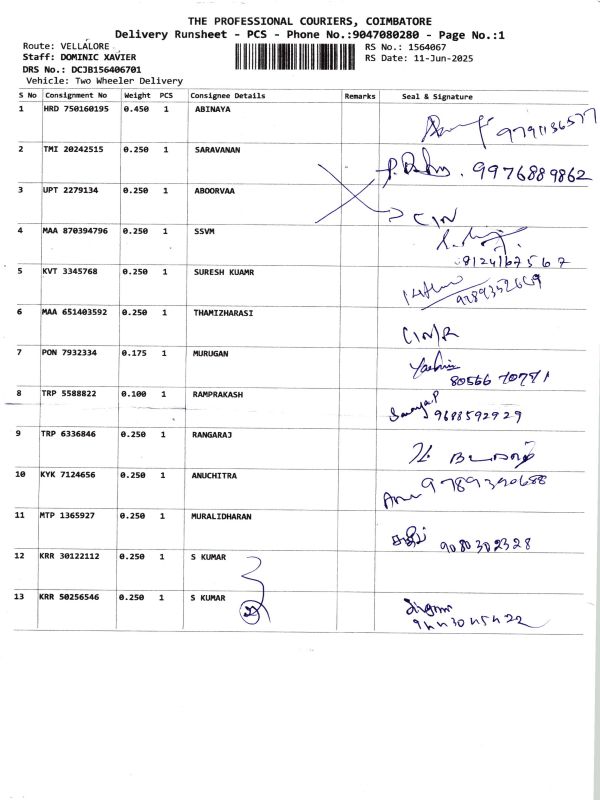 THE PROFESSIONAL COURIERS, COIMBATORE
Delivery Runsheet - PCS - Phone No.:9047080280 - Page No.:1
Route: VELLALORE
RS No.: 1564067
Staff: DOMINIC XAVIER
RS Date: 11-Jun-2025
DRS No.: DCJB156406701
Vehicle: Two Wheeler Delivery
S No Consignment No Weight PCS Consignee Details Remarks Seal & Signature
1 HRD 750160195 0.450 1 ABINAYA
2 TMI 20242515 0.250 1 SARAVANAN 9976889862
3 UPT 2279134 0.250 1 ABOORVAA C/N
4 MAA 870394796 0.250 1 SSVM 8124167567
5 KVT 3345768 0.250 1 SURESH KUAMR
6 MAA 651403592 0.250 1 THAMIZHARASI C/N/R
7 PON 7932334 0.175 1 MURUGAN 80566 70771
8 TRP 5588822 0.100 1 RAMPRAKASH 9688592929
9 TRP 6336846 0.250 1 RANGARAJ
10 KYK 7124656 0.250 1 ANUCHITRA 9789390688
11 MTP 1365927 0.250 1 MURALIDHARAN 9080302328
12 KRR 30122112 0.250 1 S KUMAR
13 KRR 50256546 0.250 1 S KUMAR